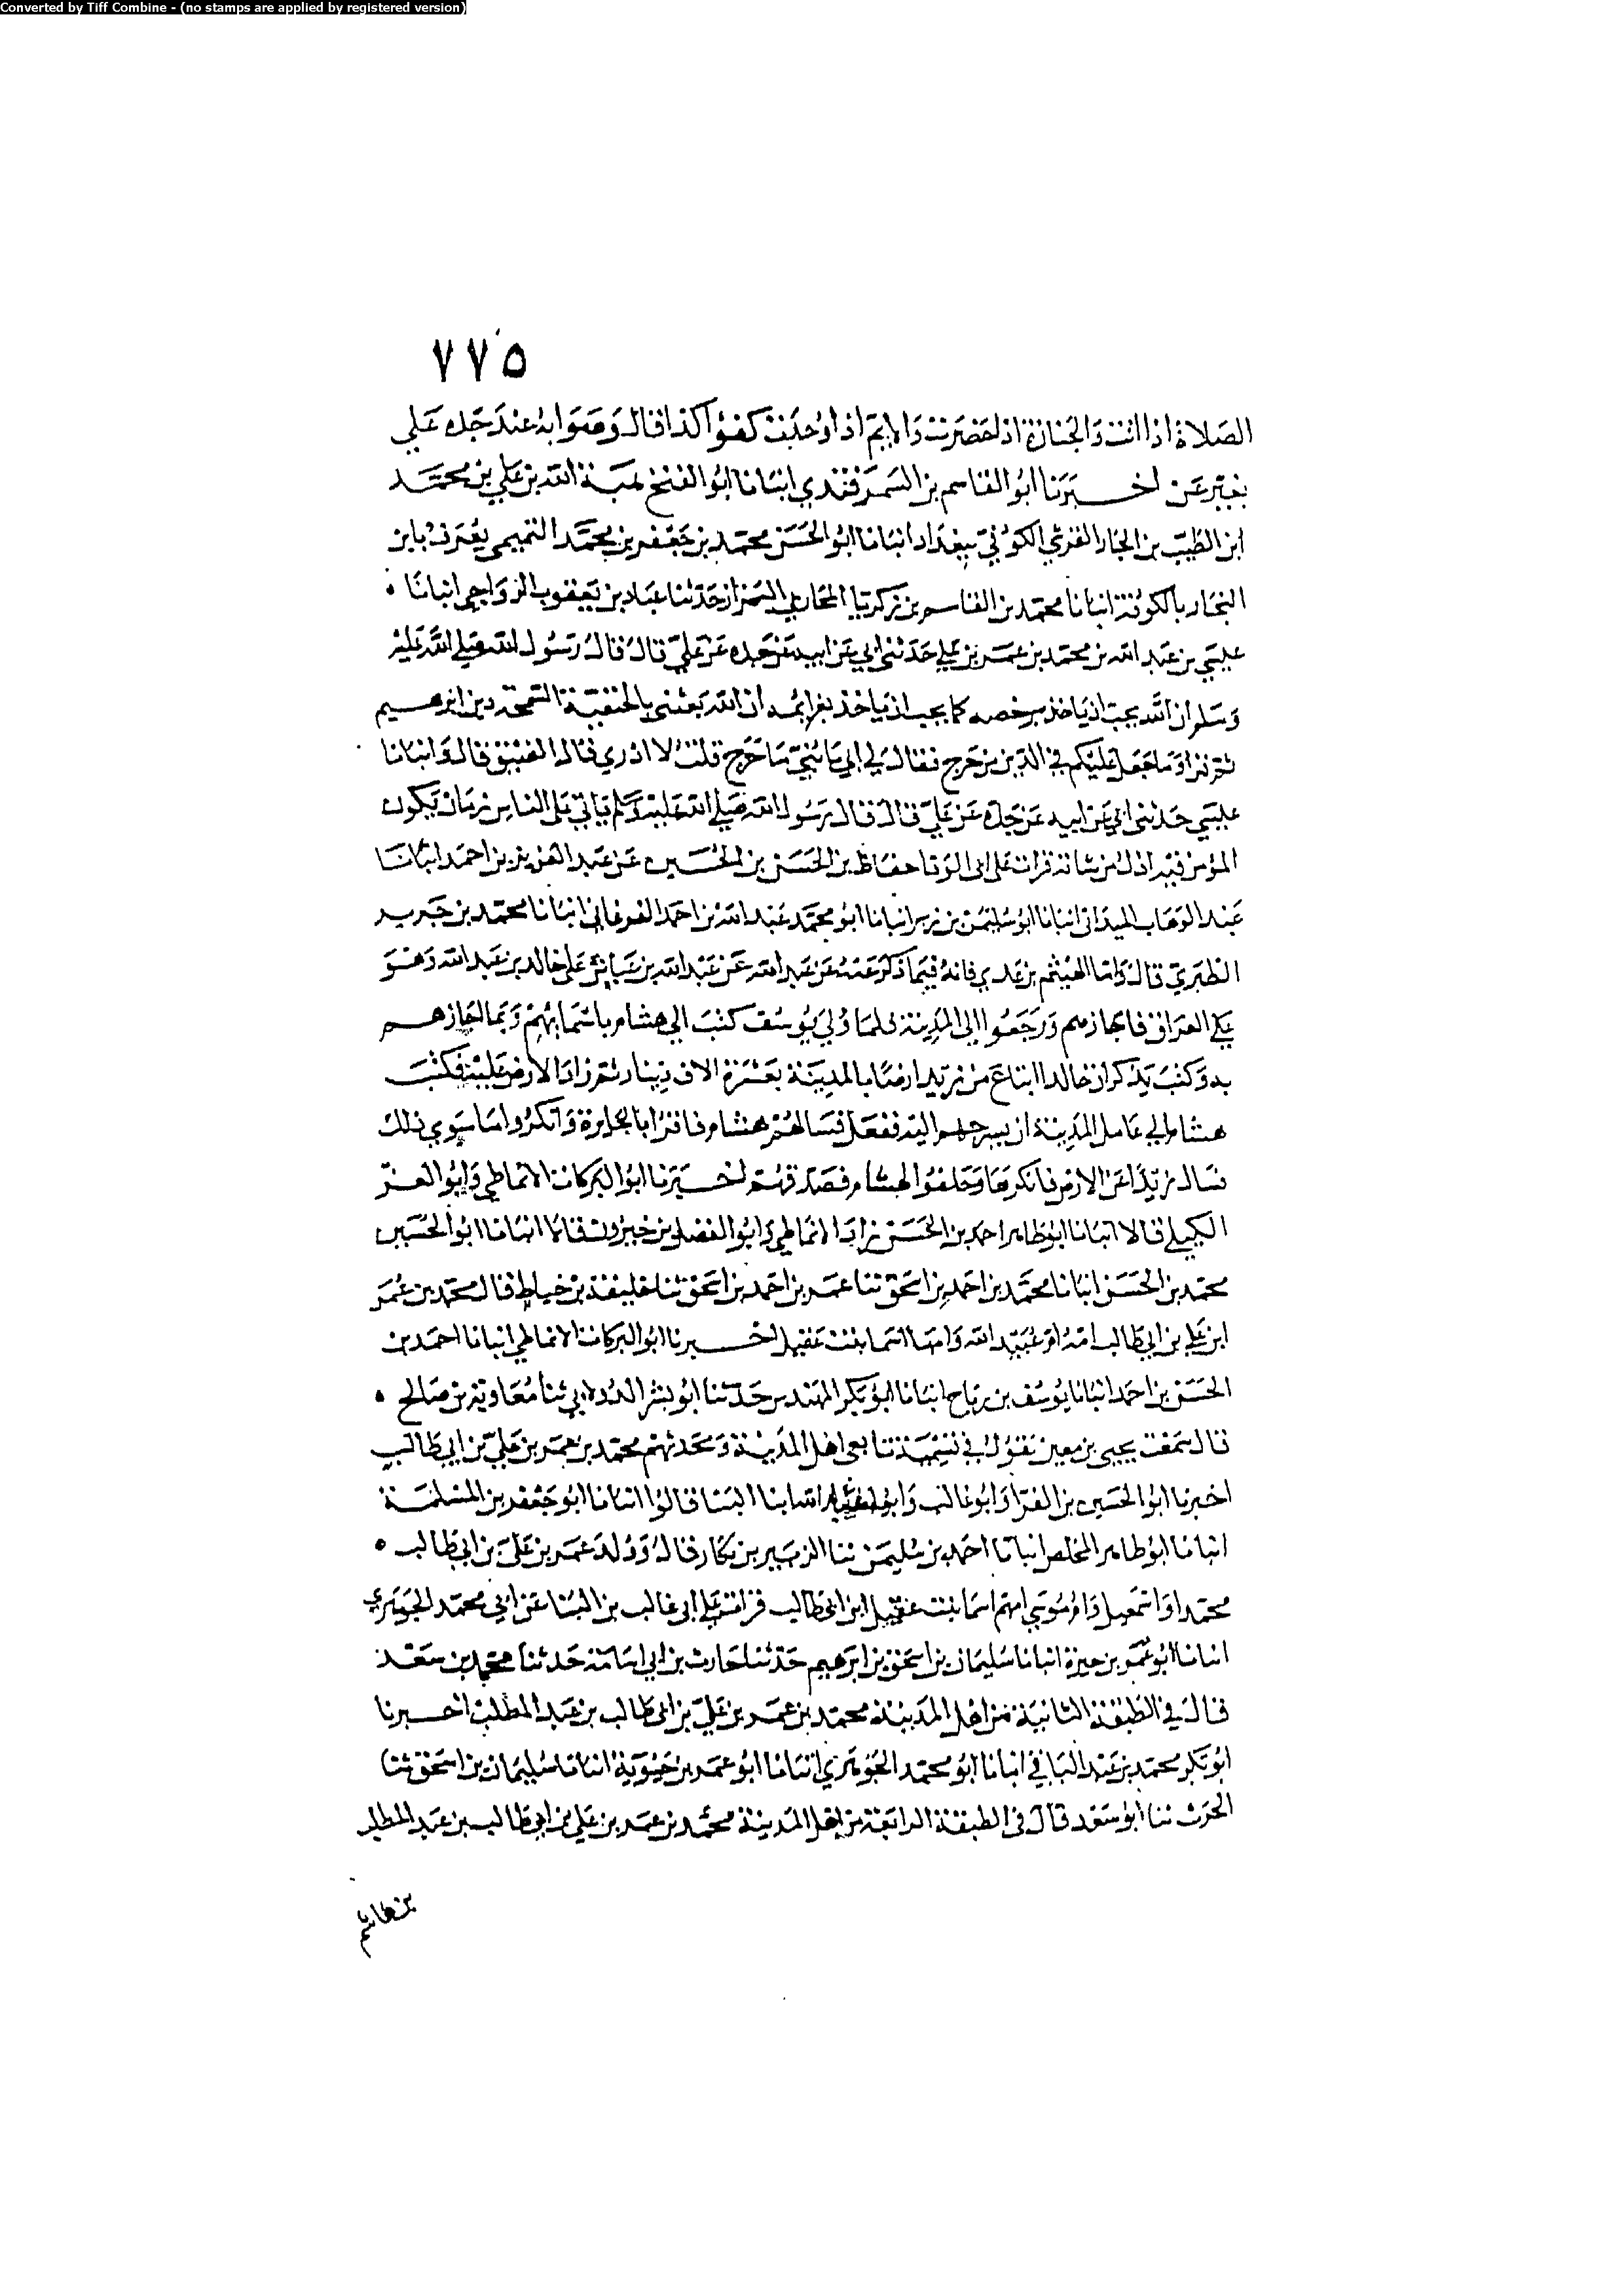 Converted by Tiff Combine - (no stamps are applied by registered version)
٧٧٥
الصلاة اذا اتت والجنازة اذا حضرت والايم اذا وجدت كفؤا كذا قال وصوابه عند جده علي
بغير عن اخبرنا ابو القاسم بن السمرقندي انبانا ابو الفتح هبة الله بن علي بن محمد
ابن الطيب بن الجار القرشي الكوفي ببغداد انبانا ابو الحسن محمد بن جعفر بن محمد التميمي يعرف بابن
النجار بالكوفة انبانا محمد بن القاسم بن زكريا المحاربي حدثنا عباد بن يعقوب الرواجني انبانا
عيسي بن عبد الله بن محمد بن عمر بن علي حدثني ابي عن ابيه عن جده عن علي قال قال رسول الله صلي الله عليه
وسلم ان الله يحب ان ياخذ برخصه كما يحب ان ياخذ بعزائمه ان الله بعثني بالحنيفية السمحة دين ابرهيم
ثم قرا وما جعل عليكم في الدين من حرج فقال لي ابي يا بني ما حرج قلت لا ادري قال الضيق قال وانبانا
عيسي حدثني ابي عن ابيه عن جده عن علي قال قال رسول الله صلي الله عليه وسلم ياتي علي الناس زمان يكون
المؤمن فيه اذل من شاته قرات علي ابي الوفا حفاظ بن الحسن بن الحسين عن عبد العزيز بن احمد انبانا
عبد الوهاب الميداني انبانا ابو سليمن بن زبر انبانا ابو محمد عبد الله بن احمد الفرغاني انبانا محمد بن جرير
الطبري قال واما الهيثم بن عدي فانه فيما ذكر عنه عن عبد الله عن عبد الله بن عياش علي خالد بن عبد الله وهو
علي العراق فاجازهم ورجعوا الي المدينة فلما ولي يوسف كتب الي هشام باسمايهم وبما اجازهم
به وكتب يذكر ان خالدا ابتاع من زيد ارضا بالمدينة بعشرة الاف دينار ثم رد الارض عليه فكتب
هشام الي عامل المدينة ان يسرحهم اليه ففعل فسالهم هشام فاقروا بالجايزة وانكروا ما سوي ذلك
فسال زيدا عن الارض فانكرها وحلفوا لهشام فصدقهم اخبرنا ابو البركات الانماطي وابو العز
الكيلي قالا انبانا ابو طاهر احمد بن الحسن زاد الانماطي وابو الفضل بن خيرون قالا انبانا ابو الحسين
محمد بن الحسن انبانا محمد بن احمد بن اسحق ثنا عمر بن احمد بن اسحق ثنا خليفة بن خياط قال محمد بن عمر
ابن علي بن ابي طالب امه ام عبيد الله وامها اسما بنت عقيل اخبرنا ابو البركات الانماطي انبانا احمد بن
الحسن بن احمد انبانا يوسف بن رباح انبانا ابو بكر المهندس حدثنا ابو بشر الدولابي ثنا معاوية بن صالح
قال سمعت يحيى بن معين يقول في تسمية تابعي اهل المدينة ومحدثيهم محمد بن عمر بن علي بن ابي طالب
اخبرنا ابو الحسين بن الفرا وابو غالب وابو عبد الله ابنا البنا قالوا انبانا ابو جعفر بن المسلمة
انبانا ابو طاهر المخلص انبانا احمد بن سليمن ثنا الزبير بن بكار قال وولد عمر بن علي بن ابي طالب
محمدا واسمعيل وام موسي امهم اسما بنت عقيل ابن ابي طالب قرات علي ابي غالب بن البنا عن ابي محمد الجوهري
انبانا ابو عمر بن حيوة انبانا سليمان بن اسحق بن ابرهيم حدثنا حارث بن ابي اسامة حدثنا محمد بن سعد
قال في الطبقة الثانية من اهل المدينة محمد بن عمر بن علي بن ابي طالب بن عبد المطلب اخبرنا
ابو بكر محمد بن عبد الباقي انبانا ابو محمد الجوهري انبانا ابو عمر بن حيوية انبانا سليمان بن اسحق ثنا
الحرث ثنا ابو سعد قال في الطبقة الرابعة من اهل المدينة محمد بن عمر بن علي بن ابي طالب بن عبد المطلب
بن هاشم